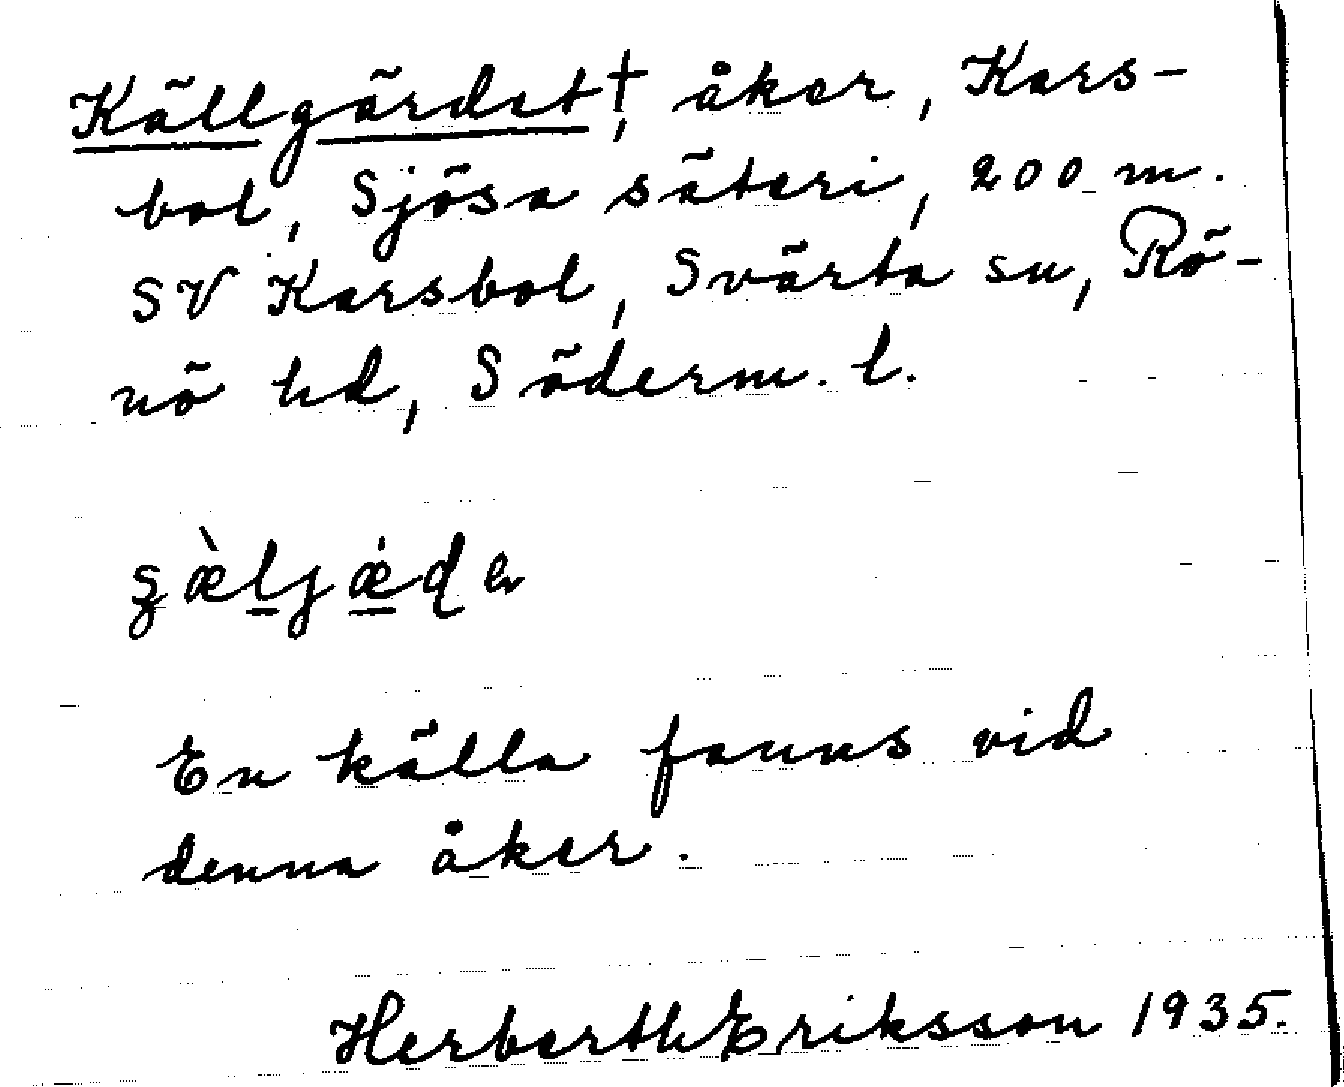 Källgärdet†, åker, Kars-
bol, Sjösa säteri, 200 m.
SV Karsbol, Svärta sn, Rö-
nö hd, Söderm. l.
En källa fanns vid
denna åker.
Herberth Eriksson 1935.